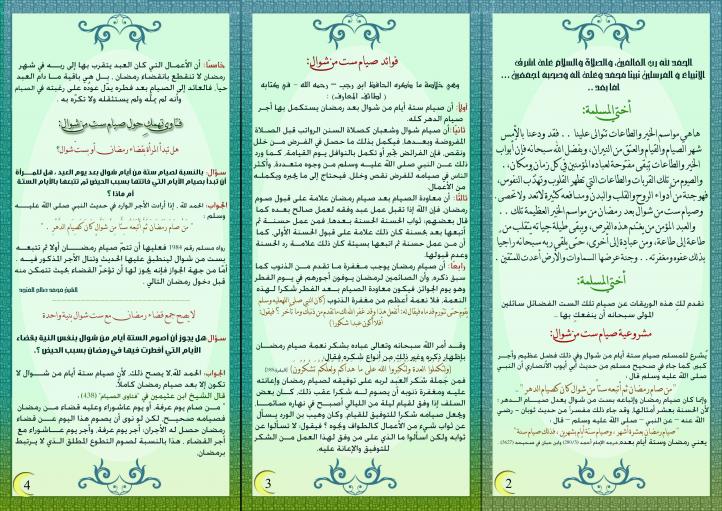 الحمد لله رب العالمين، والصلاة والسلام على أشرف
الأنبياء و المرسلين نبينا محمد وعلى آله وصحبه أجمعين ...
أما بعد ..
أختي المسلمة:
ها هي مواسم الخير والطاعات تتوالى علينا .. فقد ودعنا بالأمس
شهر الصيام والقيام والعتق من النيران، وبفضل الله سبحانه فإن أبواب
الخير والطاعات تبقى مفتوحة لعباده المؤمنين في كل زمان ومكان،،
والصوم من تلك القربات والطاعات التي تطهر القلوب وتهذب النفوس،
فهو جنة من أدواء الروح والقلب والبدن ومنافعه كثيرة لا تعد ولا تحصى
وصيام ست من شوال بعد رمضان من مواسم الخير العظيمة تلك ..
والعبد المؤمن من يغتنم هذه الفرص، ويبقى طيلة حياته يتقلب من
طاعة إلى طاعة، ومن عبادة إلى أخرى، حتى يلقى ربه سبحانه راجيا
بذلك عفوه ومغفرته .. وجنة عرضها السماوات والأرض أعدت للمتقين .
أختي المسلمة:
نقدم لك هذه الوريقات عن صيام تلك الست الفضائل سائلين
المولى سبحانه أن ينفعك بها ..
مشروعية صيام ست من شوال:
يُشرع للمسلم صيام ستة أيام من شوال وفي ذلك فضل عظيم وأجر
كبير كما جاء في صحيح مسلم من حديث أبي أيوب الأنصاري أن النبي
صلى الله عليه وسلم قال :
"من صام رمضان ثم أتبعه ستا من شوال كان كصيام الدهر" ..
وإنا كان صيام رمضان وإتباعه بست من شوال يعدل صيام الدهر :
لأن الحسنة بعشر أمثالها، وقد جاء ذلك مفسراً من حديث ثوبان - رضي
الله عنه - عن النبي - صلى الله عليه وسلم - قال :
"صيام رمضان بعشرة أشهر ، وصيام ستة أيام بشهرين ، فذلك صيام سنة"
يعني رمضان وستة أيام بعده
2
فوائد صيام ست من شوال:
وهي خلاصة ما ذكره الحافظ ابن رجب - رحمه الله - في كتابه
( لطائف المعارف) :
أولاً: أن صيام ستة أيام من شوال بعد رمضان يستكمل بها أجر
صيام الدهر كله.
ثانياً: أن صيام شوال وشعبان كصلاة السنن الرواتب قبل الصلاة
المفروضة وبعدها، فيكمل بذلك ما حصل في الفرض من خلل
ونقص، فإن الفرائض تجبر أو تكمل بالنوافل يوم القيامة، كما ورد
ذلك عن النبي صلى الله عليه وسلم من وجوه متعددة، وأكثر
الناس في صيامه للفرض نقص وخلل، فيحتاج إلى ما يجبره ويكمله
من الأعمال.
ثالثاً : أن معاودة الصيام بعد رمضان علامة على قبول صوم
رمضان. فإن الله إذا تقبل عمل عبد وفقه لعمل صالح بعده كما
قال بعضهم، ثواب الحسنة الحسنة بعدها، فمن عمل حسنة ثم
أتبعها بحسنة كان ذلك علامة على قبول الحسنة الأولى، كما
أن من عمل حسنة ثم اتبعها بسيئة كان ذلك علامة رد الحسنة
وعدم قبولها.
رابعاً: أن صيام رمضان يوجب مغفرة ما تقدم من الذنوب كما
سبق ذكره، وأن الصائمين لرمضان يوفون أجورهم في يوم الفطر
وهو يوم الجوائز، فيكون معاودة الصيام بعد الفطر شكرا لهذه
النعمة، فلا نعمة أعظم من مغفرة الذنوب (كان النبي صلى الله عليه وسلم
يقوم حتى تتورم قدماه فيقال له: أتفعل هذا وقد غفر الله لك ما تقدم من ذنبك وما تأخر ؟ فيقول:
أفلا أكون عبدا شكورا)
وقد أمر الله سبحانه وتعالى عباده بشكر نعمة صيام رمضان
بإظهار ذكره وغير ذلك من أنواع شكره فقال:
(وَلِتُكْمِلُوا الْعِدَّةَ وَلِتُكَبِّرُوا اللَّهَ عَلَى مَا هَدَاكُمْ وَلَعَلَّكُمْ تَشْكُرُونَ)
فمن جملة شكر العبد لربه على توفيقه لصيام رمضان وإعانته
عليه ومغفرة ذنوبه أن يصوم له شكرا عقب ذلك. كان بعض
السلف إذا وفق لقيام ليلة من الليالي أصبح في نهاره صائما
ويجعل صيامه شكرا للتوفيق للقيام. وكان وهيب بن الورد يسأل
عن ثواب شيء من الأعمال كالطواف ونحوه ؟ فيقول: لا تسألوا عن
ثوابه ولكن اسألوا ما الذي على من وفق لهذا العمل من الشكر
للتوفيق والإعانة عليه.
3
خامساً: أن الأعمال التي كان العبد يتقرب بها إلى ربه في شهر
رمضان لا تنقطع بانقضاء رمضان . بل هي باقية ما دام العبد
حياً، فالعائد إلى الصيام بعد فطره يدل عوده على رغبته في الصيام
وأنه لم يمله ولم يستثقله ولا تكره به .
فتاوى تهمك حول صيام ست من شوال:
هل تبدأ المرأة بقضاء رمضان أو ست شوال؟
سؤال: بالنسبة لصيام ستة من أيام شوال بعد يوم العيد ، هل للمرأة
أن تبدأ بصيام الأيام التي فاتتها بسبب الحيض ثم تتبعها بالأيام الستة
أم ماذا ؟
الجواب: الحمد لله . إذا أرادت الأجر الوارد في حديث النبي صلى الله عليه
وسلم :
" من صام رمضان ثم أتبعه ستا من شوال كان كصيام الدهر . "
رواه مسلم رقم 1984 فعليها أن تتم صيام رمضان أولا ثم تتبعه
بست من شوال لينطبق عليها الحديث وتنال الأجر المذكور فيه .
أمّا من جهة الجواز فإنه يجوز لها أن تؤخر القضاء بحيث تتمكن منه
قبل دخول رمضان التالي .
الشيخ محمد صالح المنجد
لا يصح جمع قضاء رمضان مع ست شوال بنية واحدة
سؤال هل يجوز أن أصوم الستة أيام من شوال بنفس النية بقضاء
الأيام التي أفطرت فيها في رمضان بسبب الحيض ؟.
الجواب: الحمد لله لا يصح ذلك، لأن صيام ستة أيام من شوال لا
تكون إلا بعد صيام رمضان كاملاً.
قال الشيخ ابن عثيمين في "فتاوى الصيام" (438) :
" من صام يوم عرفة، أو يوم عاشوراء وعليه قضاء من رمضان
فصيامه صحيح، لكن لو نوى أن يصوم هذا اليوم عن قضاء
رمضان حصل له الأجران: أجر يوم عرفة، وأجر يوم عاشوراء مع
أجر القضاء . هذا بالنسبة لصوم التطوع المطلق الذي لا يرتبط
برمضان.
4